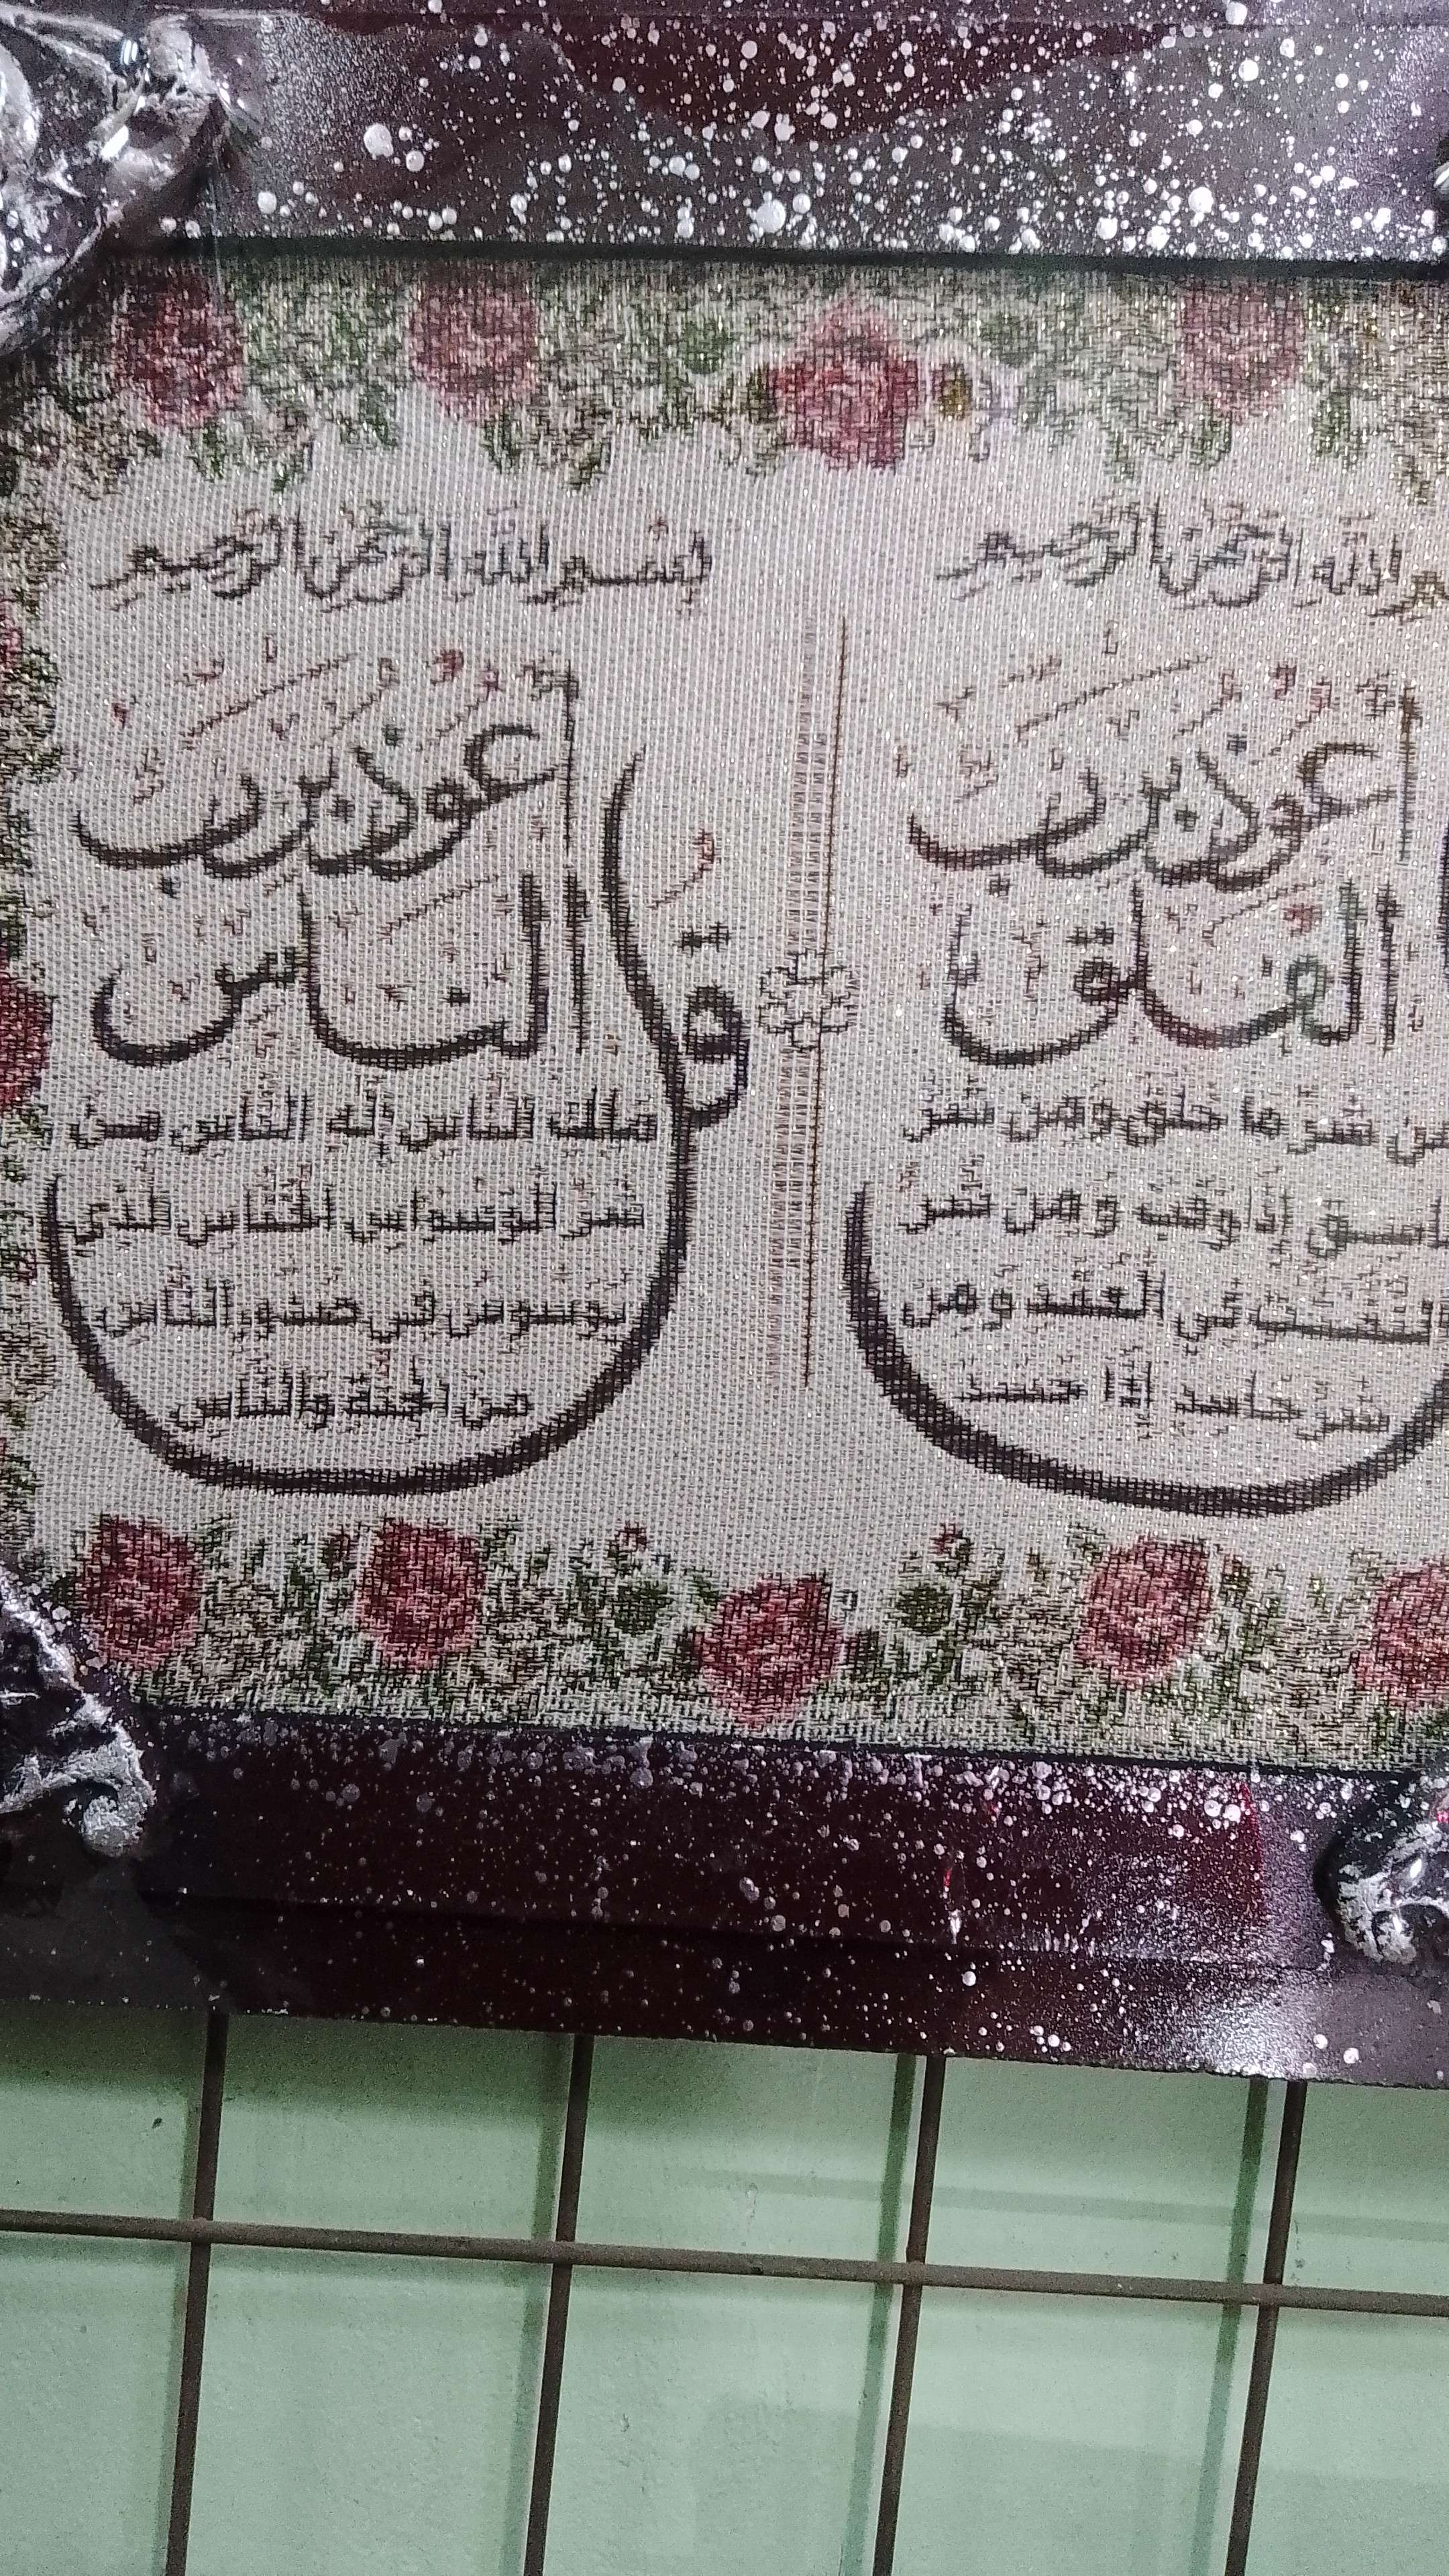 الله الرحمن الرحيم
أعوذ برب
الفلق
من شر ما خلق ومن شر
إذا وقب ومن شر
النفثت في العقد ومن
شر حاسد إذا حسد
بسم الله الرحمن الرحيم
قل أعوذ برب
الناس
ملك الناس إله الناس من
شر الوسواس الخناس الذي
يوسوس في صدور الناس
من الجنة والناس